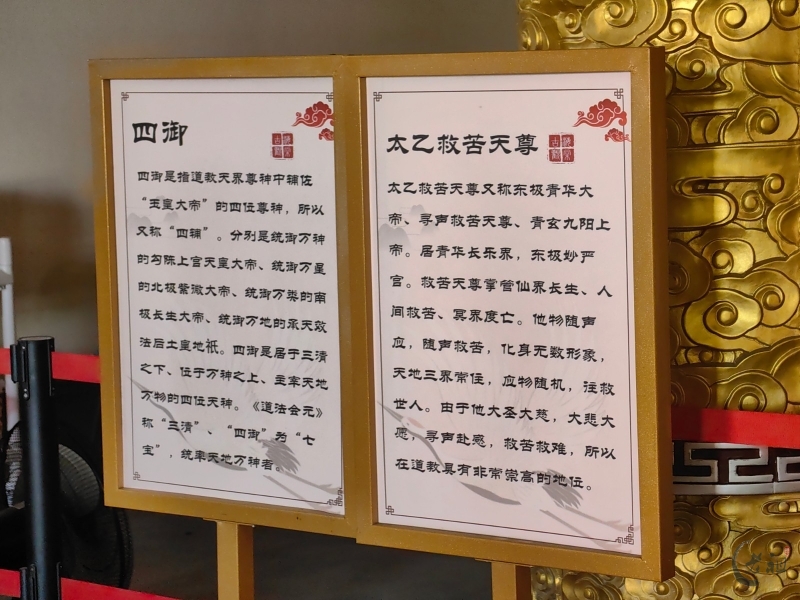 四御
四御是指道教天界尊神中辅佐
“玉皇大帝”的四位尊神，所以
又称“四辅”。分别是统御万神
的勾陈上宫天皇大帝、统御万星
的北极紫微大帝、统御万类的南
极长生大帝、统御万地的承天效
法后土皇地祇。四御是居于三清
之下、位于万神之上、主宰天地
万物的四位天神。《道法会元》
称“三清”、“四御”为“七
宝”，统率天地万神者。
太乙救苦天尊
太乙救苦天尊又称东极青华大
帝、寻声救苦天尊、青玄九阳上
帝。居青华长乐界，东极妙严
宫。救苦天尊掌管仙界长生、人
间救苦、冥界度亡。他物随声
应，随声救苦，化身无数形象，
天地三界常住，应物随机，往救
世人。由于他大圣大慈，大悲大
愿，寻声赴感，救苦救难，所以
在道教具有非常崇高的地位。